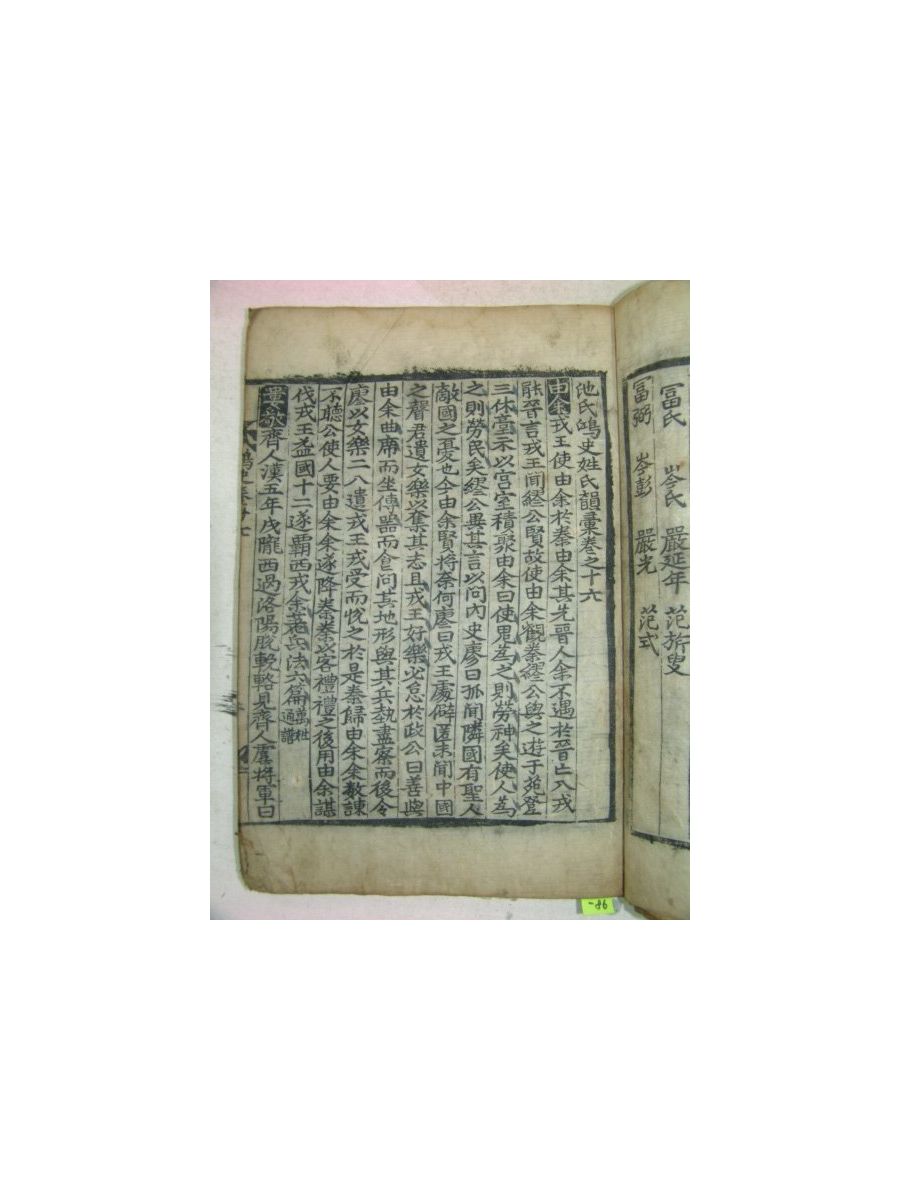 冨氏 岑氏 嚴延年 范拆叟
冨弼 岑彭 嚴光 范式
池氏鴻史姓氏韻彙卷之十六
由余戎王使由余於秦由余其先晉人余不遇於晉亡入戎
能晉言戎王聞繆公賢故使由余觀秦繆公與之遊于苑登
三休臺示以宫室積聚由余曰使鬼爲之則勞神矣使人爲
之則勞民矣繆公異其言以問內史廖曰孤聞隣國有聖人
敵國之憂也今由余賢將奈何廖曰戎王處僻匿未聞中國
之聲君遺女樂以奪其志且戎王好樂必怠於政公曰善與
由余曲席而坐傳器而食問其地形與其兵埶盡察而後令
廖以女樂二八遺戎王戎受而悅之於是秦歸由余余數諫
不聽公使人要由余余遂降秦秦以客禮禮之後用由余謀
伐戎王益國十二遂覇西戎余著兵法六篇萬姓通譜
婁敬齊人漢五年戍隴西過洛陽脫輓輅見齊人虞將軍曰